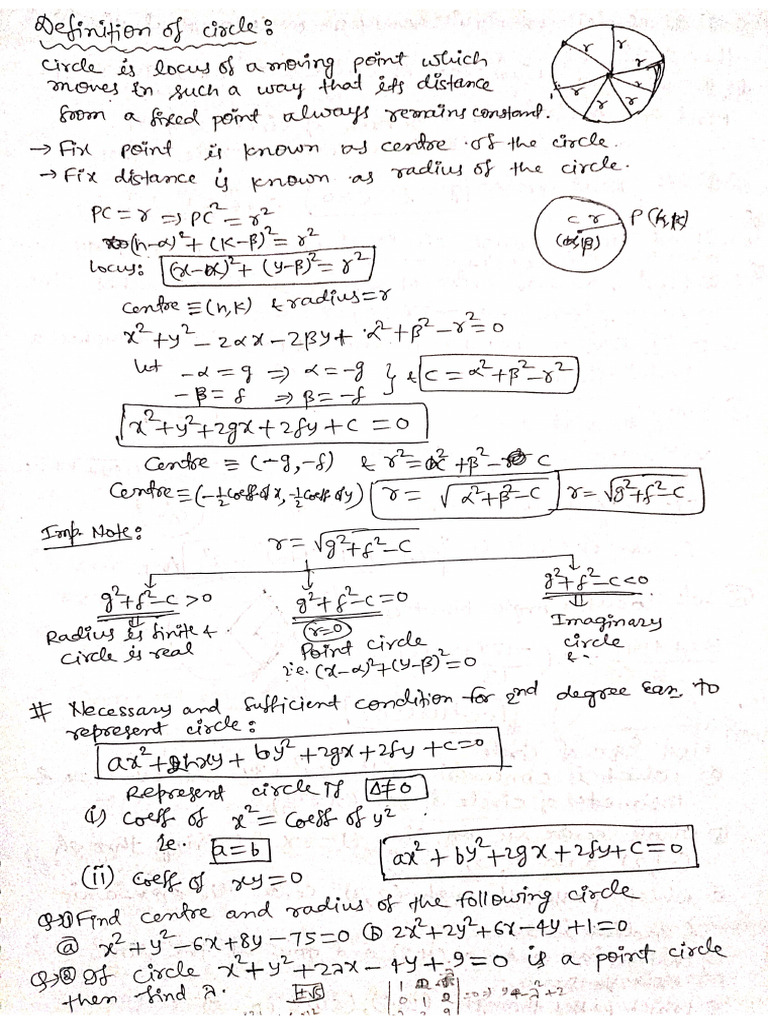 Definition of circle:
Circle is locus of a moving point which
moves in such a way that its distance
from a fixed point always remains constant.
r r r r r r r
→ Fix point is known as centre of the circle.
→ Fix distance is known as radius of the circle.
PC = r ⇒ PC² = r²
(h-α)² + (K-β)² = r²
C r P(h,k)
(α,β)
locus: (x-α)² + (y-β)² = r²
Centre ≡ (h,K) & radius = r
x² + y² - 2αx - 2βy + α² + β² - r² = 0
let -α = g ⇒ α = -g } & C = α² + β² - r²
-β = f ⇒ β = -f
x² + y² + 2gx + 2fy + c = 0
Centre ≡ (-g, -f) & r² = α² + β² - c
Centre ≡ (-½ coeff of x, -½ coeff of y) r = √α² + β² - C r = √g² + f² - C
Imp. Note: r = √g² + f² - C
g² + f² - c > 0 g² + f² - c = 0 g² + f² - c < 0
Radius is finite & r=0 Imaginary
circle is real Point circle circle
i.e. (x-α)² + (y-β)² = 0 &
# Necessary and sufficient condition for 2nd degree Eqn. to
represent circle:
ax² + 2hxy + by² + 2gx + 2fy + c = 0
Represent circle if Δ ≠ 0
(i) coeff of x² = coeff of y²
ie a = b
ax² + by² + 2gx + 2fy + c = 0
(ii) coeff of xy = 0
Q→① Find centre and radius of the following circle
ⓐ x² + y² - 6x + 8y - 75 = 0 ⓑ 2x² + 2y² + 6x - 4y + 1 = 0
Q→② If circle x² + y² + 2λx - 4y + 9 = 0 is a point circle
then find λ. ±√5